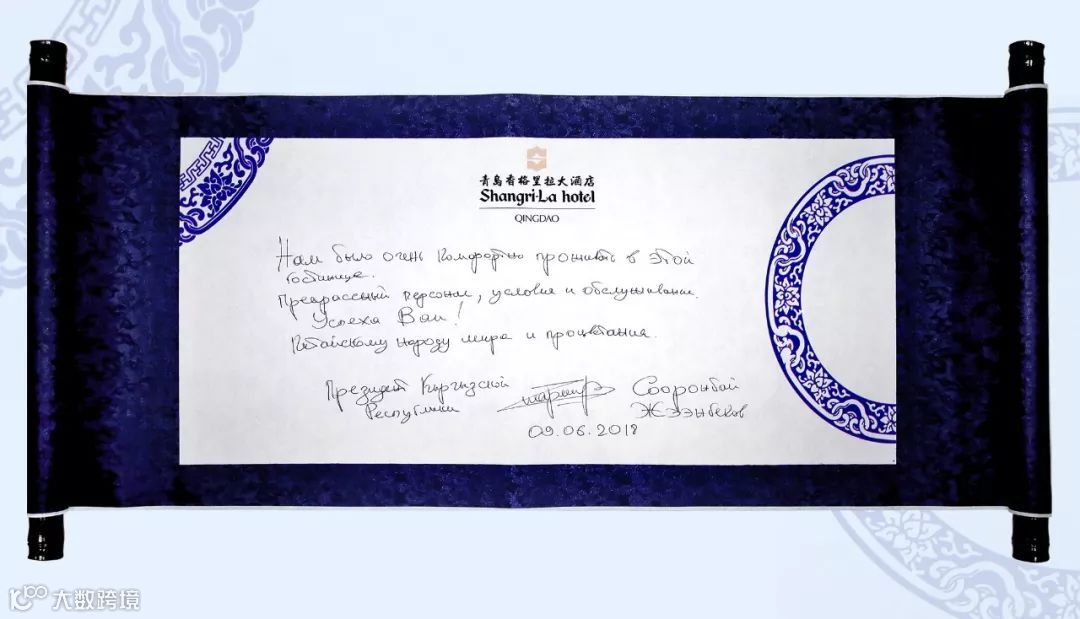 青岛香格里拉大酒店
Shangri-La hotel
QINGDAO
Нам было очень комфортно проживать в этой
гостинице.
Прекрассный персонал, условия и обслуживание.
Успеха Вам!
Китайскому народу мира и процветания.
Президент Кыргызской Сооронбай
Республики Жээнбеков
09.06.2018
大数跨境